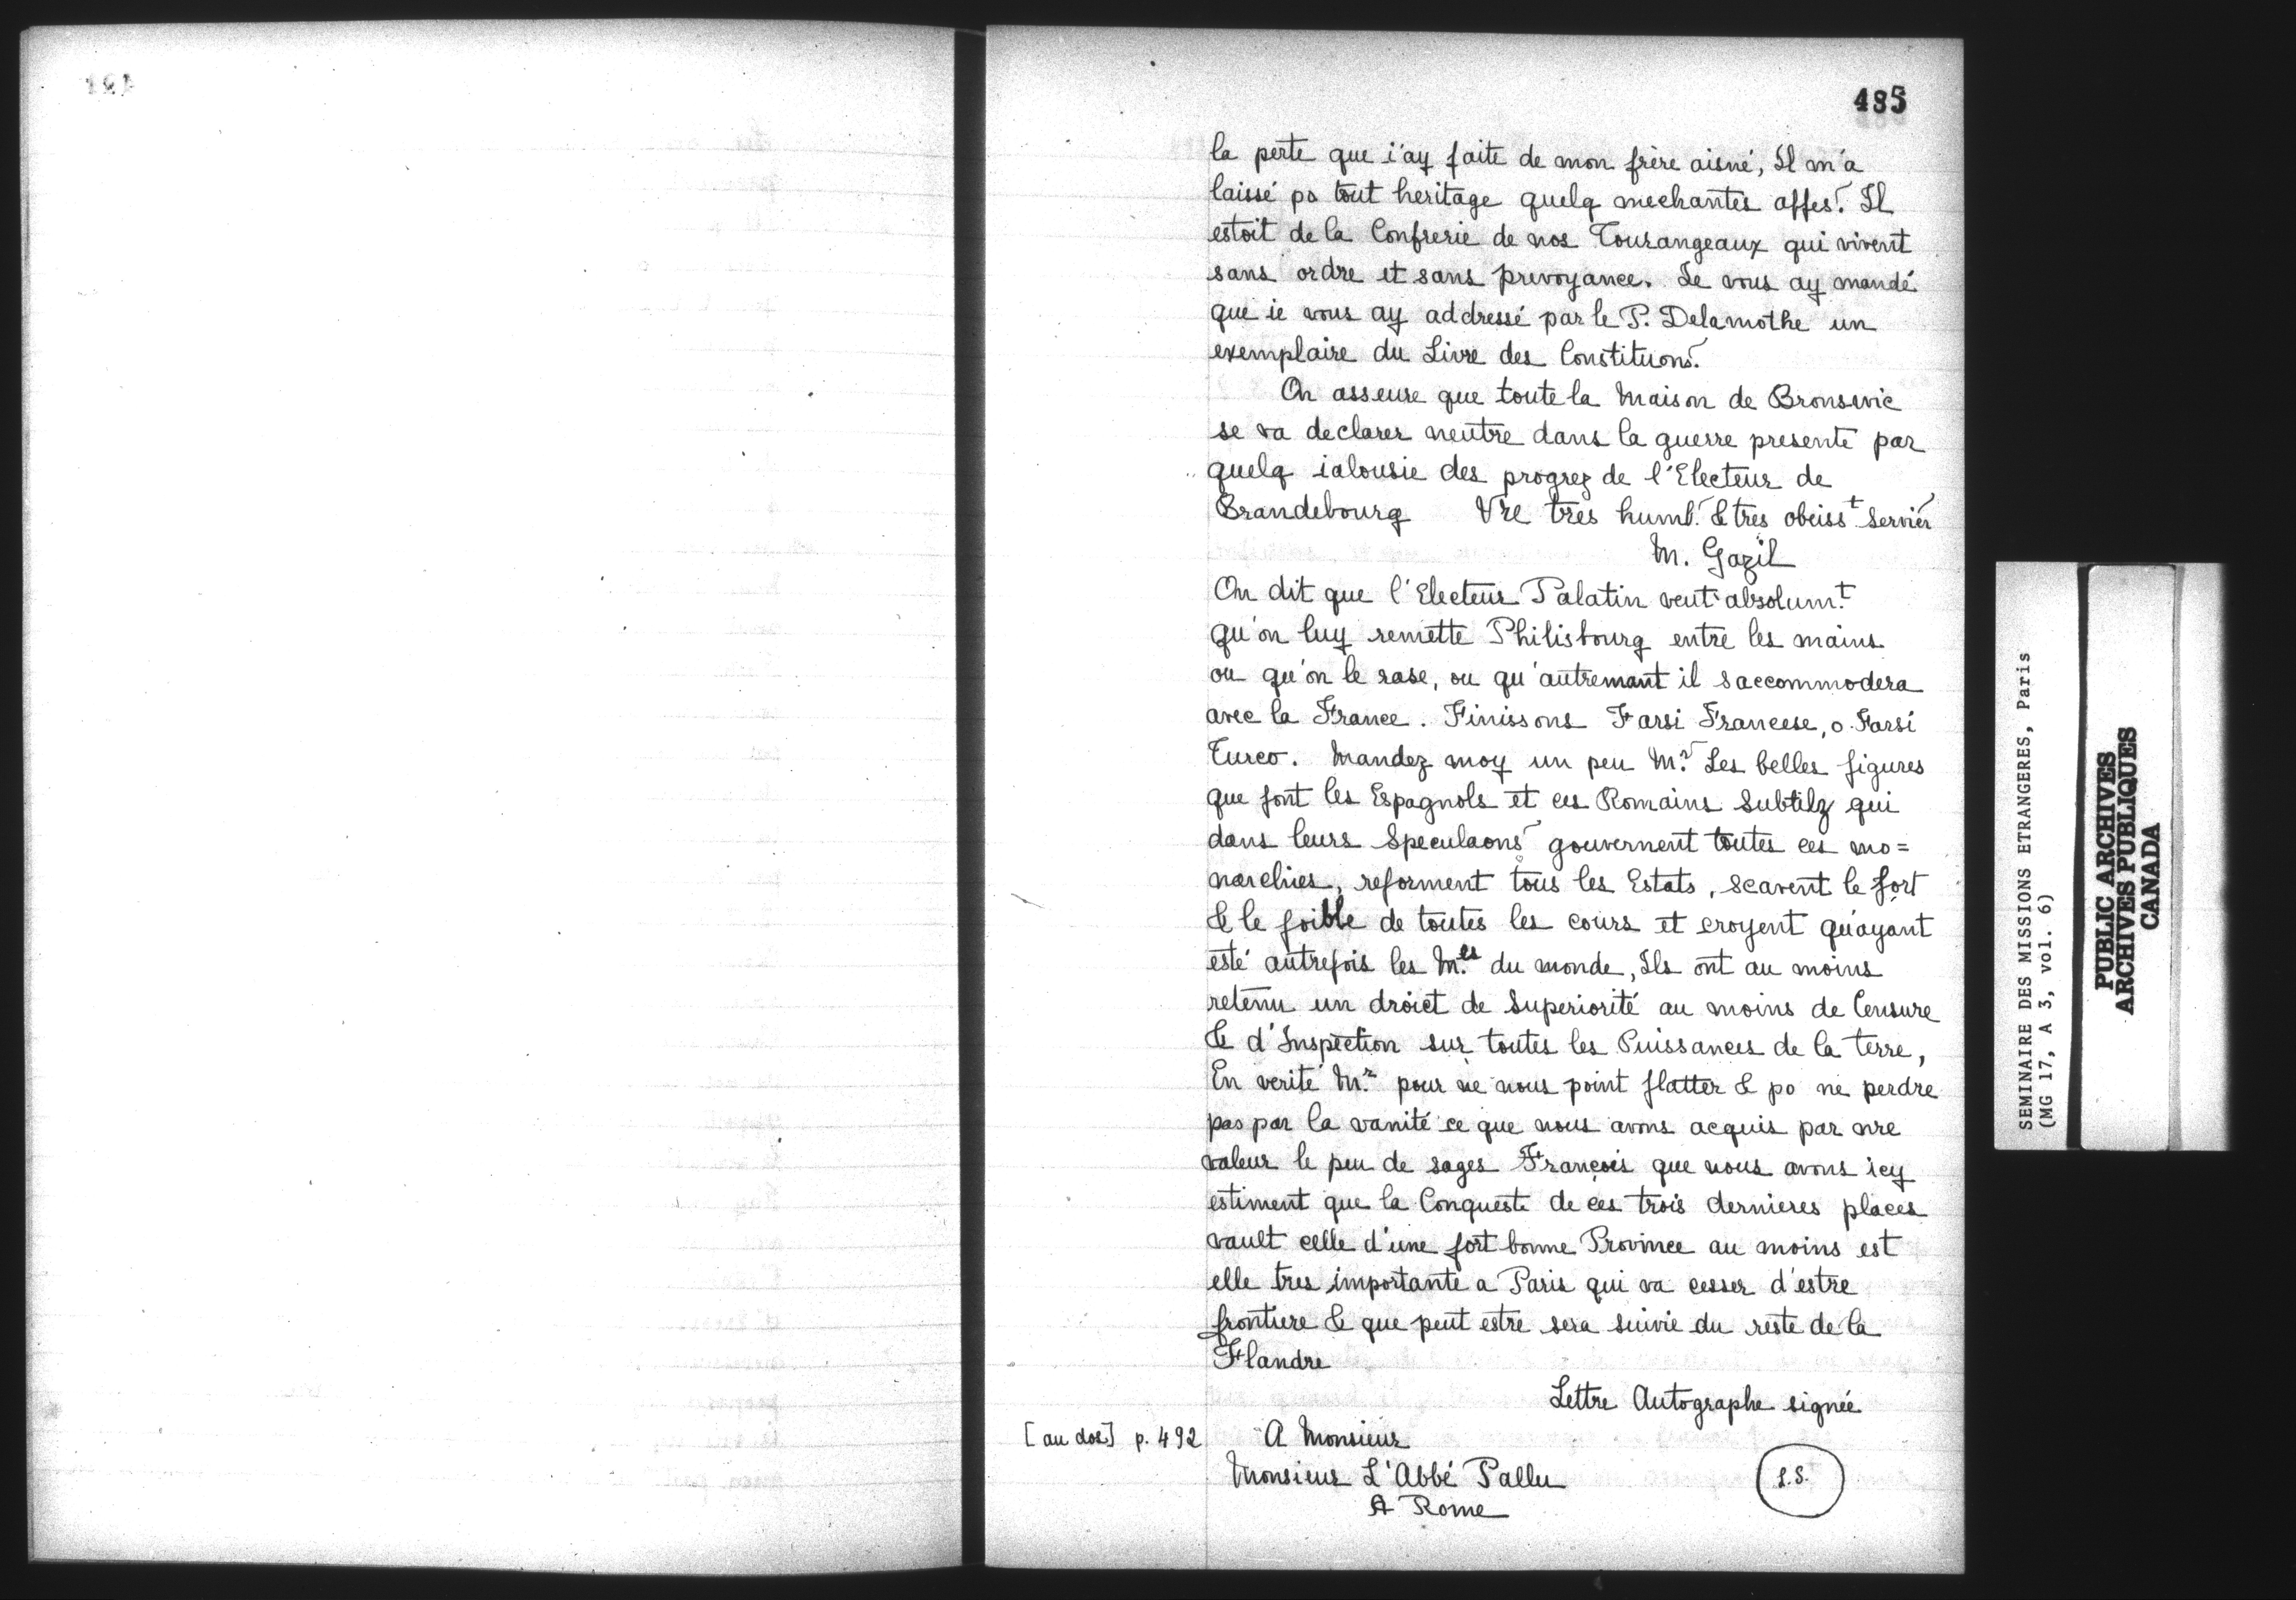 485
la perte que i'ay faite de mon frère aisné, Il m'a
laissé po tout heritage quelq mechantes affes. Il
estoit de la Confrerie de nos Tourangeaux qui vivent
sans ordre et sans prevoyance. Ie vous ay mandé
que ie vous ay addressé par le P. Delamothe un
exemplaire du Livre des Constituons.
On asseure que toute la Maison de Bronsvic
se va declarer neutre dans la guerre presente par
quelq ialousie des progrez de l'Electeur de
Brandebourg Vre tres humb. & tres obeisst Servier
M. Gazil
On dit que l'Electeur Palatin veut absolumt
qu'on luy remette Philisbourg entre les mains
ou qu'on le rase, ou qu'autremant il saccommodera
avec la France. Finissons Farsi Francese, o Farsi
Turco. Mandez moy un peu Mr Les belles figures
que font les Espagnols et ces Romains Subtilz qui
dans leurs Speculaons gouvernent toutes ces mo=
narchies, reforment tous les Estats, scavent le fort
& le foible de toutes les cours et croyent qu'ayant
esté autrefois les M.es du monde, Ils ont au moins
retenu un droict de Superiorité au moins de Censure
& d'Inspection sur toutes les Puissances de la terre,
En verité Mr pour ne nous point flatter & po ne perdre
pas par la vanité ce que nous avons acquis par nre
valeur le peu de sages François que nous avons icy
estiment que la Conqueste de ces trois dernieres places
vault celle d'une fort bonne Province au moins est
elle tres importante a Paris qui va cesser d'estre
frontiere & que peut estre sera suivie du reste de la
Flandre
Lettre Autographe signée
[au dos] p. 492 A Monsieur
Monsieur L'Abbé Pallu
A Rome
L.S.
SEMINAIRE DES MISSIONS ETRANGERES, Paris
(MG 17, A 3, vol. 6)
PUBLIC ARCHIVES
ARCHIVES PUBLIQUES
CANADA